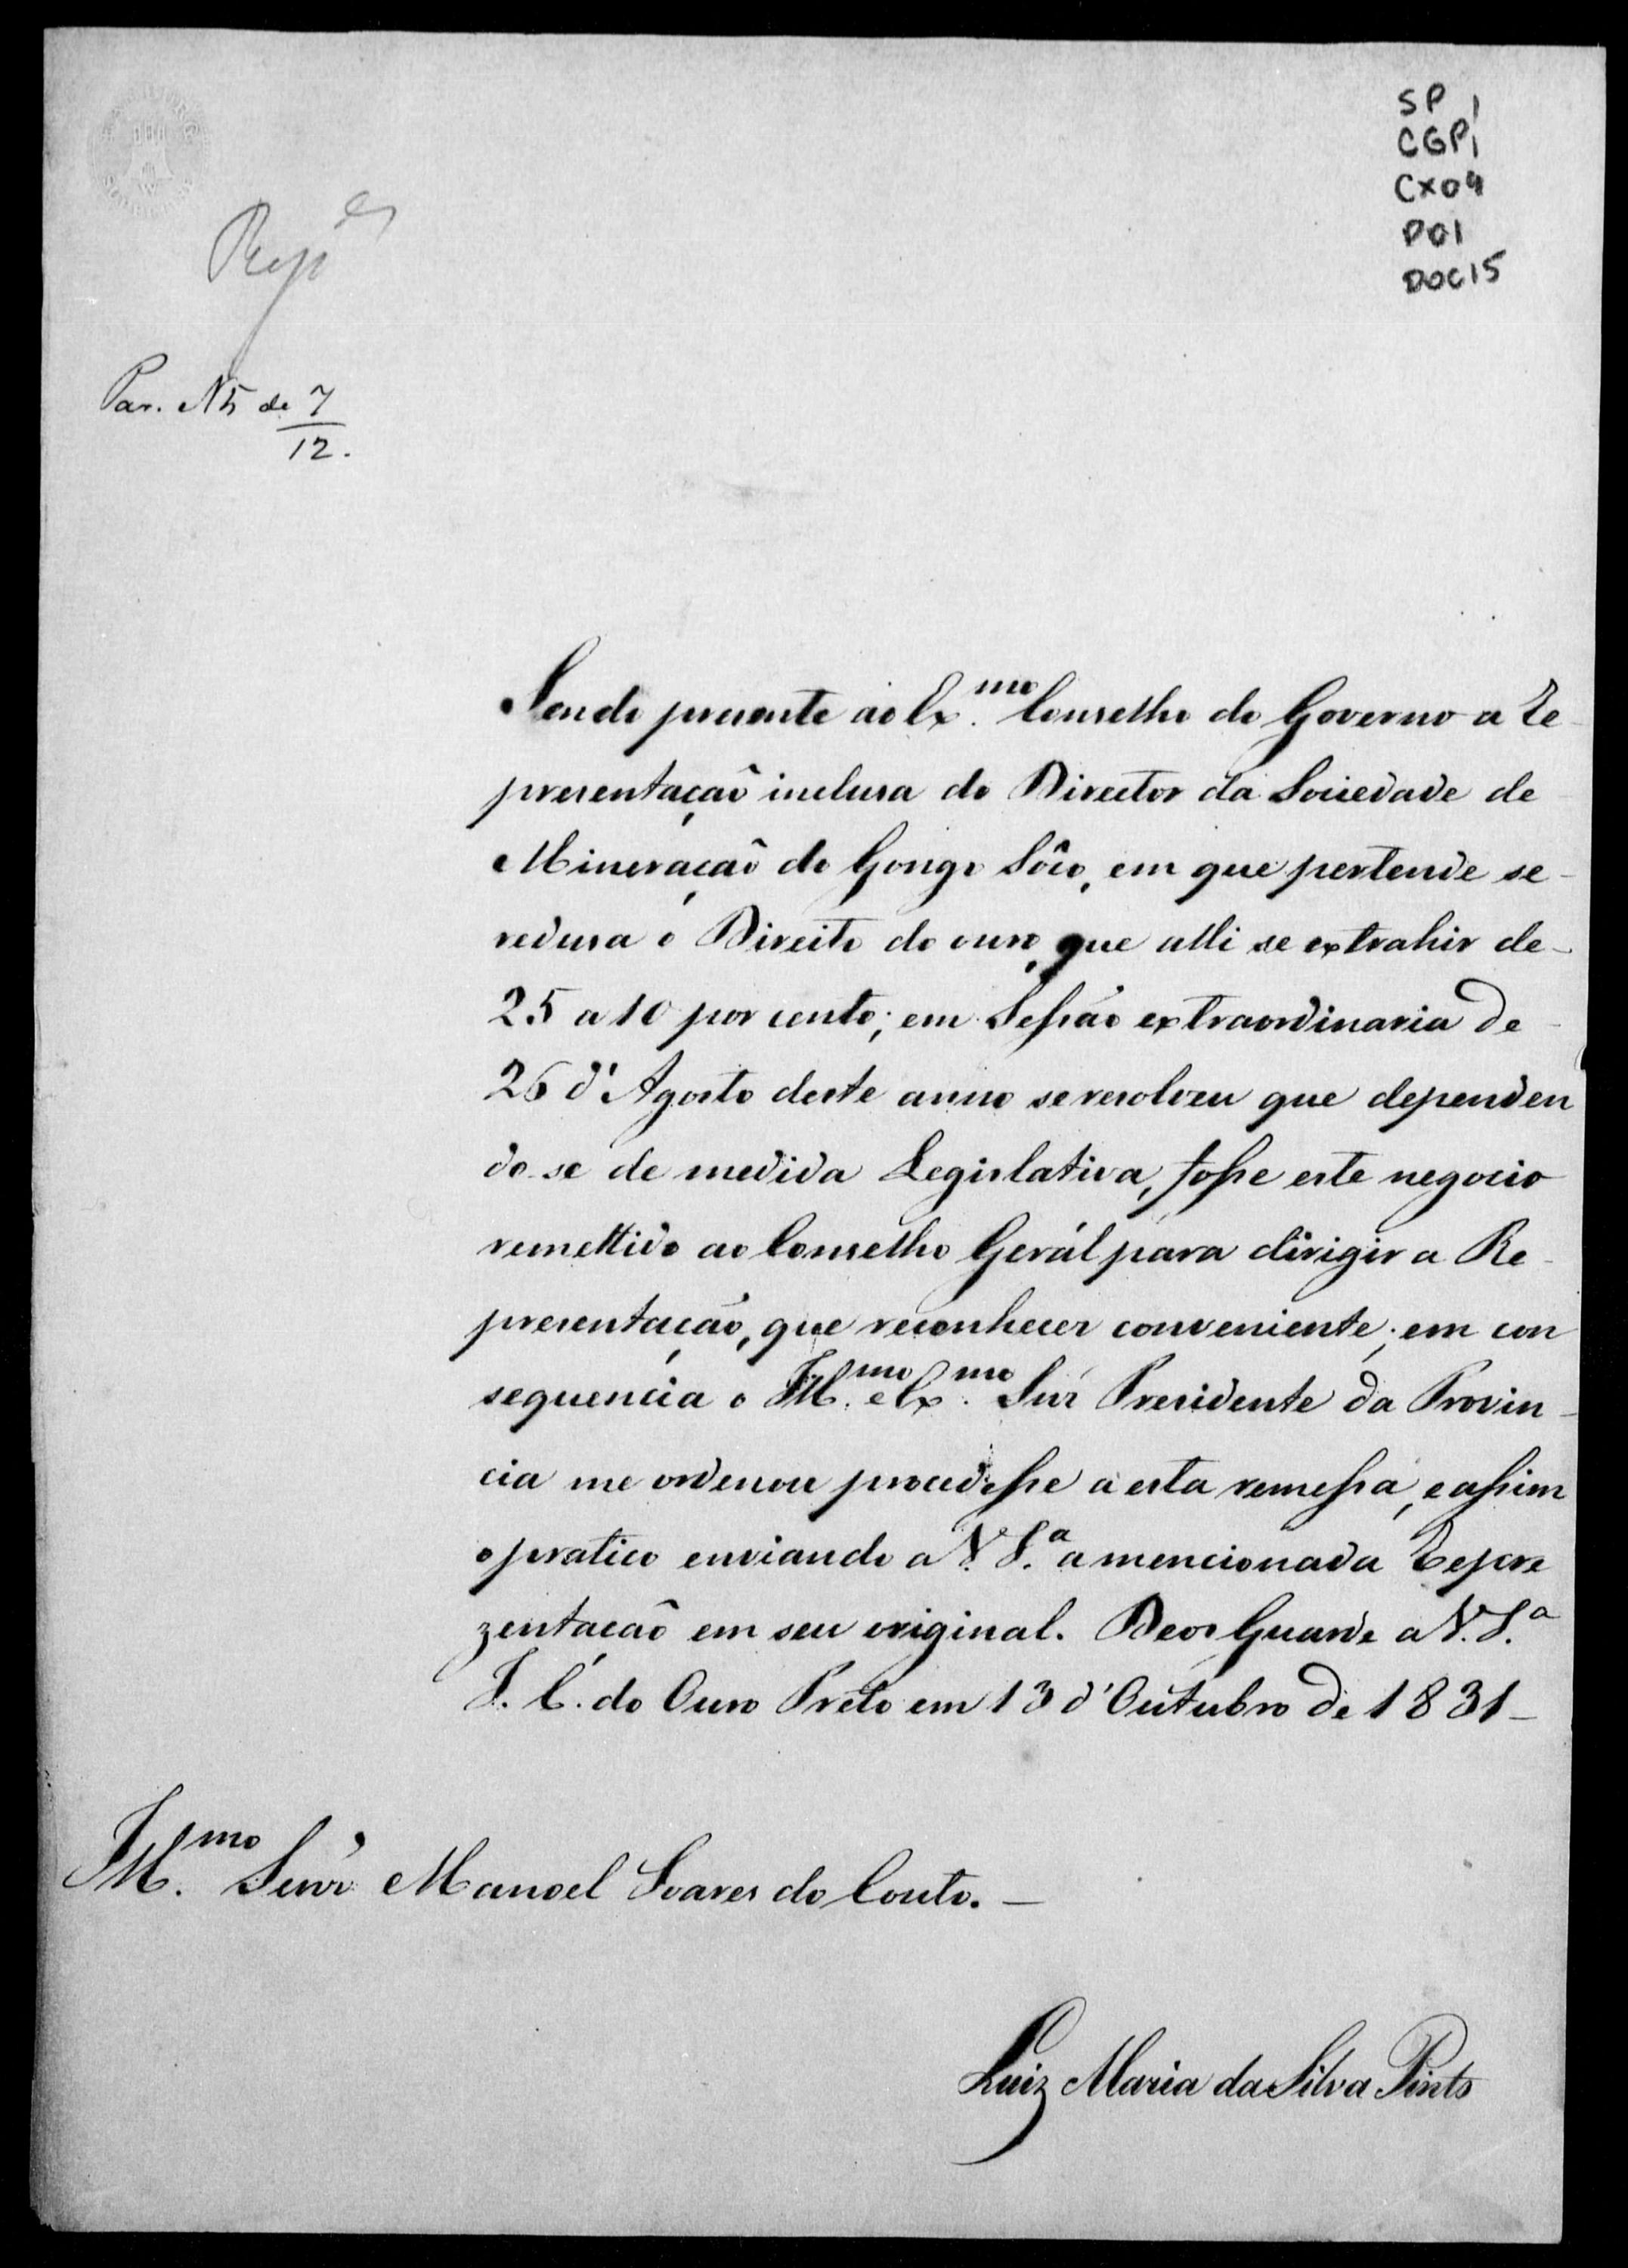 SP 1
CGP1
CX04
D01
DOC15
Par. N5 de 7
12.
Sendo presente ao Ex.mo Conselho do Governo a Re-
presentação inclusa do Director da Sociedade de
Mineração do Gongo Sôco, em que pertende se-
redusa o Direito do ouro, que alli se extrahir de-
25 a 10 por cento; em Sessão extraordinaria de-
26 d'Agosto deste anno se resolveu que dependen
do-se de medida Legislativa, fosse este negocio
remettido ao Conselho Gerál para dirigir a Re-
presentação, que reconhecer conveniente; em con
sequencia o Ill.mo e Ex.mo Snr' Presidente da Provin-
cia me ordenou procedesse a esta remessa, e assim
o pratico enviando a V. S.a a mencionada Repre
zentacaõ em seu original. Deos Guarde a V. S.a
I. C. do Ouro Preto em 13 d'Outubro de 1831-
Ill.mo Senr' Manoel Soares do Couto. -
Luiz Maria da Silva Pinto